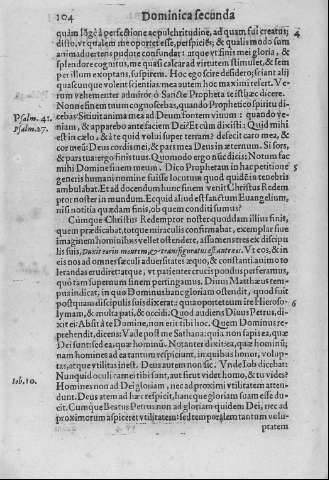 104 Dominica secunda
quàm lõgè à perfectione ac pulchritudine, ad quam fui creatus; 4
disto, vt qualem me oportet esse, perspiciēs; & qualis modo sum
animaduertens pudore confundar: atque vt finis mei gloria, &
splendore cognitus, me quasi calcar ad virtutem stimulet, & sem
per illum exoptans, suspirem. Hoc ego scire desidero; sciant alij
quascunque volent scientias: mea autem hoc maximi refert. Ve-
rum vehementer admiror ò Sancte Propheta te istuc dicere.
Nonne finem tuum cognoscebas, quando Prophetico spiritu di-
Psalm. 41. cebas; Sitiuit anima mea ad Deum fontem viuum: quando ve-
Psalm. 27. niam, & apparebo ante faciem Dei? Et cùm dixisti: Quid mihi
est in cælo. & à te quid volui super terram? defecit caro mea, &
cor meū: Deus cordis mei, & pars mea Deus in æternum. Si fors,
& pars tua: ergo finis tuus. Quomodo ergo nūc dicis; Notum fac
mihi Domine finem meum. Dico Prophetam in hac petitione 5
generis humani nomine fuisse locutum quod quidē in tenebris
ambulabat. Et ad docendum hunc finem venit Christus Redem
ptor noster in mundum. Ecquid aliud est sanctum Euangelium,
nisi notitia quædam finis, ob quem conditi sumus?
Cumque Christus Redemptor noster quoddam illius finis,
quem prædicabat, totque miraculis confirmabat, exemplar siue
imaginem hominibus vellet ostendere, assumens tres ex discipu
lis suis, Duxit eos in montem, & transfiguratus est ante eos. Vt eos, & in
eis nos ad omnes sæculi aduersitates æquo, & constanti animo to
lerandas erudiret: atque, vt patienter crucis pondus perferamus,
quò tam supernum finem pertingamus. Diuus Matthæus tem-
pus indicat, in quo Dominus hanc gloriam ostendit, quod fuit
postquam discipulis suis dixerat: quia oportet eum ire Hieroso- 6
lymam, & multa pati, & occidi. Quod audiens Diuus Petrus, di-
xit ei: Absit à te Domine, non erit tibi hoc. Quem Dominus re-
prehendit, dicens: Vade post me Sathana: quia non sapis ea, quæ
Dei sunt: sed ea, quæ hominū. Notanter dixit: ea, quæ hominū;
nam homines ad ea tantum respiciunt, in quibus honor, volup-
tas, atque vtilitas inest. Deus autem non sic. Vnde Iob dicebat:
Iob. 10. Nunquid oculi carnei tibi sunt, aut sicut videt homo, & tu vides?
Homines non ad Dei gloriam, nec ad proximi vtilitatem atten-
dunt. Deus autem ad hæc respicit, hancque gloriam suam esse du-
cit. Cumque Beatus Petrus non ad gloriam quidem Dei, nec ad
proximorum aspiceret vtilitatem: sed temporalem tantum volu-
ptatem